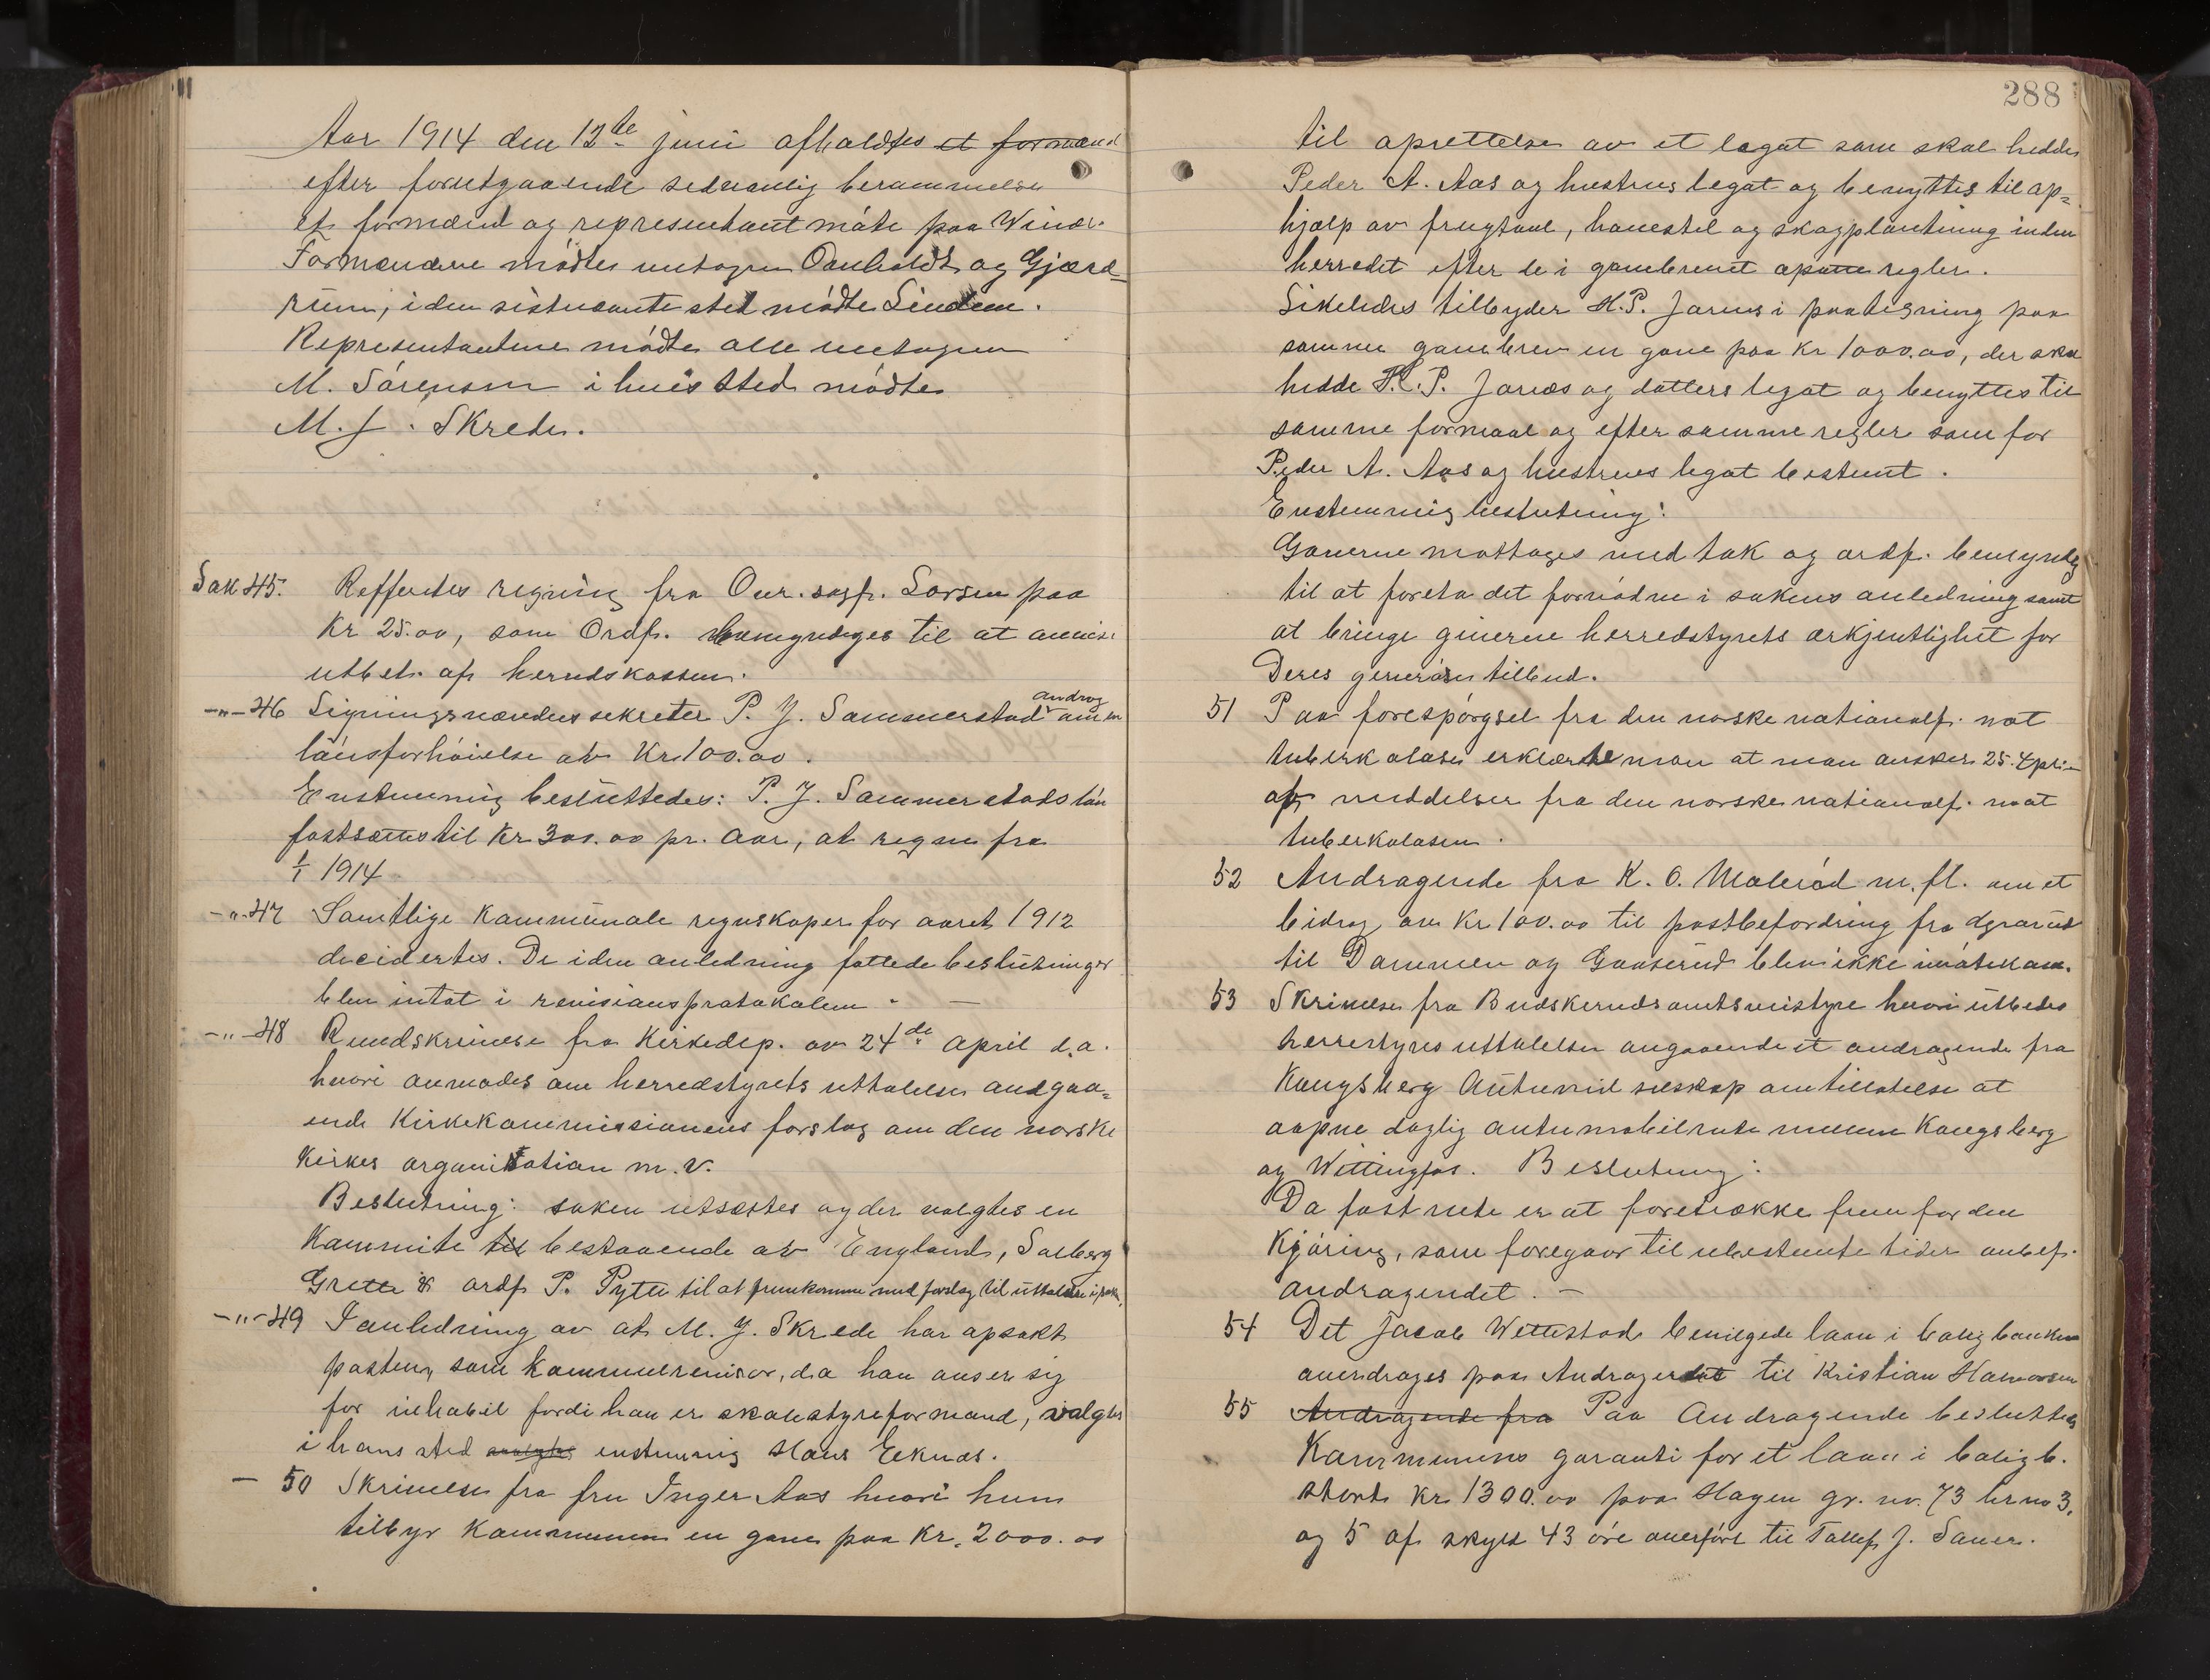 Aar 1914 den 12te juni afholdtes et formænd
efter forutgaaende sedvanlig berammelse
et formænd og representant møte paa Winæs.
Formændene mødte untagen Omholdt og Gjærd-
rum, i den sistnævnte sted mødte Lindem.
Representantene mødte alle untagen
M. Sørensen i hvis sted mødte
M. J. Skrede.
Sak 45. Refferertes regning fra Ovr. sagf. Larsen paa
Kr 25.00, som Ordf. bemyndiges til at anvise
utbet. af herredskassen.
-"- 46 Ligningsnævndens sekretær P. J. Sammerstad androg om en
lønsforhøielse av Kr 100.00.
Enstemmig besluttedes: P. J. Sammerstads løn
fastsættes til Kr 300.00 pr. Aar, at regne fra
1/1 1914
-"- 47 Samtlige kommunale regnskaper for aaret 1912
decidertes. De i den anledning fattede beslutninger
blev intat i revisionsprotokolen. —
-"- 48 Rundskrivelse fra Kirkedep. av 24de april d.a.
hvori anmodes om herredstyrets uttalelse andgaa-
ende Kirkekommissionens forslag om den norske
Kirkes organisation m.v.
Beslutning: saken utsættes og der valgtes en
Kommite til bestaaende av Englund, Solberg
Grette & ordf P. Pytte til at fremkomme med forslag til uttalelse i sak.
-"- 49 I anledning av at M. J. Skrede har opsakt
posten som kommunerevisor, da han anser sig
for inhabil fordi han er skolestyreformand, valgtes
i hans sted enstemmig Hans Eeknæs.
— 50 Skrivelse fra fru Inger Aas hvori hun
tilbyr Kommunen en gave paa Kr. 2000.00
288
til oprettelse av et legat som skal hedde
Peder A. Aas og hustrus legat og benyttes til op-
hjælp av frugtavl, havestel og skogplantning inden
herredet efter de i gavebrevet opsatte regler.
Likeledes tilbyder H.P. Jarnes i paategning paa
samme gavebrev en gave paa Kr 1000.00, der skal
hedde H.P. Jarnæs og datters legat og benyttes til
samme formaal og efter samme regler som for
Peder A. Aas og hustrues legat bestemt.
Enstemmig beslutning:
Gaverne mottages med tak og ordf. bemyndig
til at foreta det fornødne i sakens anledning samt
at bringe giverne herredstyrets ærkjentlighet for
Deres generøse tilbud.
51 Paa forespørgsel fra den norske nationalf. mot
tuberkolose erklærte man at man ønsker 25. Expl.
af meddelser fra den norske nationalf. mot
tuberkolosen.
52 Andragende fra K. O. Moleröd m. fl. om et
bidrag om Kr 100.00 til postbefordring fra
til Dammen og Gaaserud blev ikke imøtekom.
53 Skrivelse fra Buskeruds amtsveistyre hvori utbedes
herrestyres uttalelse angaaende et andragende fra
Kongsberg Automobilselskap om tillatelse at
aapne daglig automobilrute mellem Kongsberg
og Wittingfos. Beslutning:
Da fast rute er at foretrække frem for den
Kjøring, som foregaar til ubestemte tider anbef.
andragendet. —
54 Det Jacob Wettestad bevilgede laan i boligbanken
overdrages paa Andragendet til Kristian Halvorsen
55 Andragende fra Paa Andragende besluttedes
Kommunens garanti for et laan i boligb.
stort Kr 1300.00 paa Hagen gr. nr. 73 br no 3,
og 5 af skyld 43 øre overført til Tollef J. Sauer.